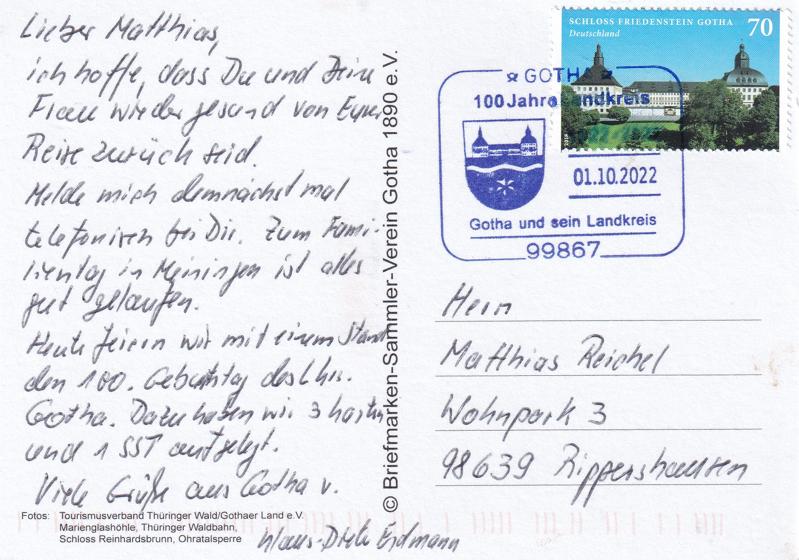 Lieber Matthias,
ich hoffe, dass Du und Deine
Frau wieder gesund von Eurer
Reise zurück seid.
Melde mich demnächst mal
telefonisch bei Dir. Zum Fami-
lientag in Meiningen ist alles
gut gelaufen.
Heute feiern wir mit einem Stand
den 100. Geburtstag des Lkrs.
Gotha. Dazu haben wir 3 Karten
und 1 SST aufgelegt.
Viele Grüße aus Gotha v.
Klaus-Dieter Erdmann
Fotos: Tourismusverband Thüringer Wald/Gothaer Land e.V.
Marienglashöhle, Thüringer Waldbahn,
Schloss Reinhardsbrunn, Ohratalsperre
© Briefmarken-Sammler-Verein Gotha 1890 e.V.
SCHLOSS FRIEDENSTEIN GOTHA 70
Deutschland
GOTHA
100 Jahre Landkreis
01.10.2022
Gotha und sein Landkreis
99867
Herrn
Matthias Reichel
Wohnpark 3
98639 Rippershausen